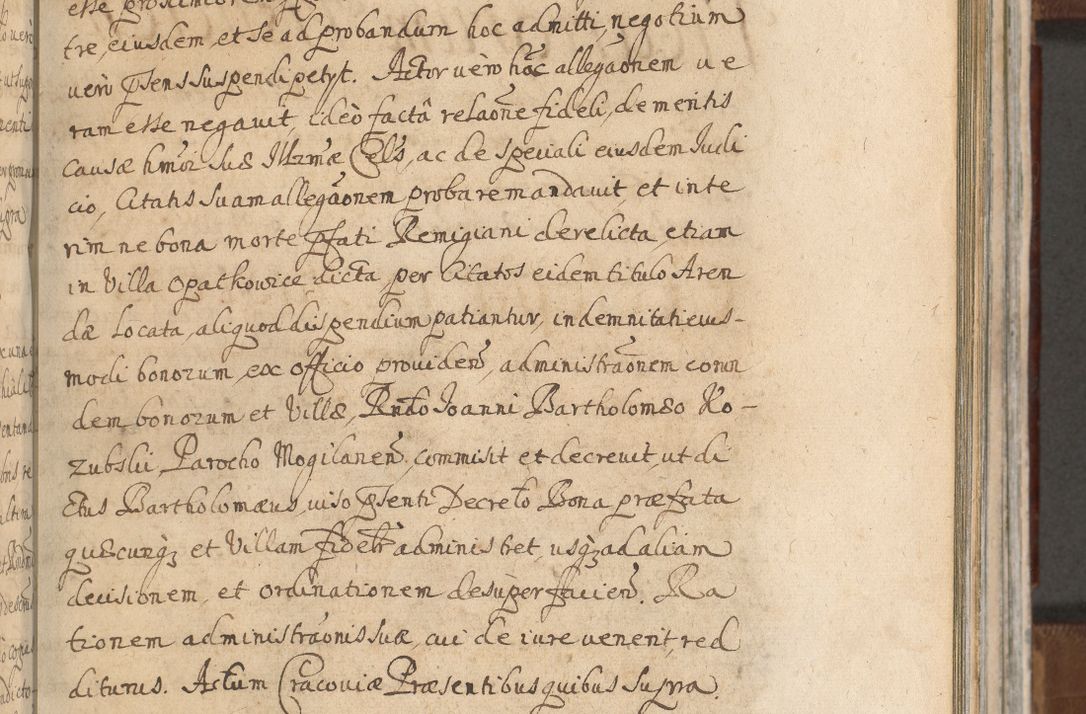 esse proximiorem
tre, eiusdem, et se ad probandum hoc admitti, negotium
uerò pñens suspendi petyt. Actor uèro hãc allegãonem ue
ram esse negauit, ideò factâ relaõne fideli, de meritis
causæ hmõi suæ Illrmæ Cels, ac de speciali eiusdem Iudi
cio, Citatis suam allegãonem probare mandauit, et inte
rim ne bona morte pfati Remigiani derelicta, etiam
in Villa Opatkowice dicta per Citatos eidem titulo Aren
dæ Locata, aliquod dispendium patiantur, indemnitati eius-
modi bonorum, ex officio prouidens, administrãonem eorun
dem bonorum et Villæ, Rndo Ioanni Bartholomæo Ko-
zubskii Parocho Mogilanens, commisit et decreuit, ut di
ctus Bartholomæus, uiso pñenti Decreto Bona præfata
quæcunqz et Villam fidelr administret, usqz ad aliam
decisionem, et ordinationem desuper faciens. Ra
tionem administrãonis suæ, cui de iure uenerit, red
diturus. Actum Cracouiæ Præsentibus quibus supra.